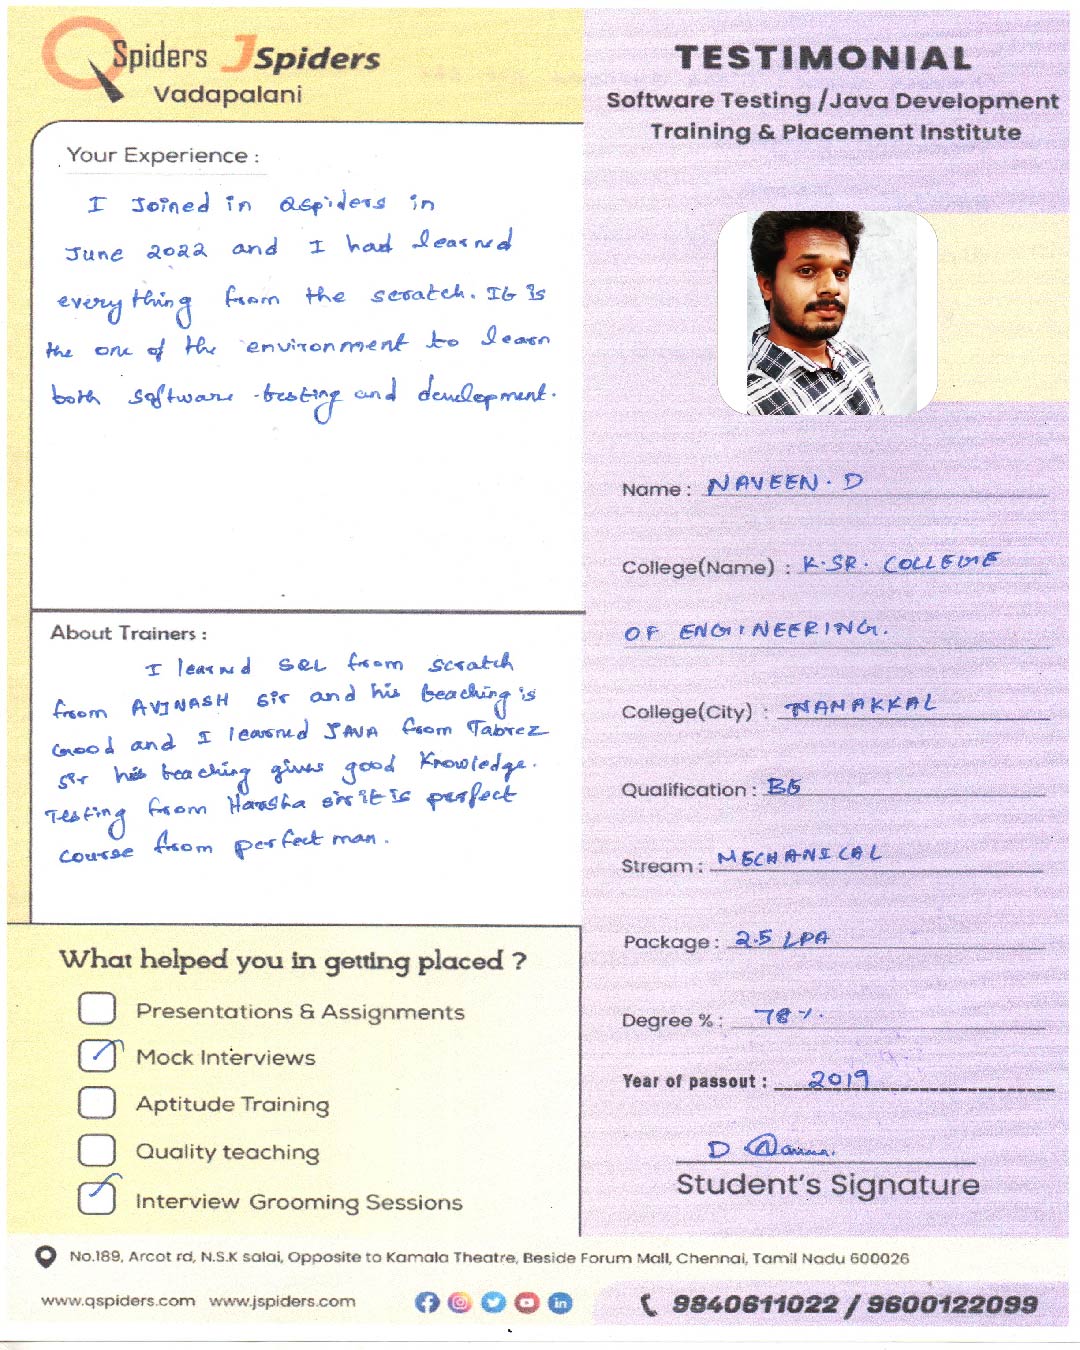 QSpiders JSpiders
Vadapalani
TESTIMONIAL
Software Testing /Java Development
Training & Placement Institute
Your Experience :
I Joined in Qspiders in
June 2022 and I had learned
everything from the scratch. It is
the one of the environment to learn
both software testing and development.
About Trainers :
I learned SQL from scratch
from AVINASH sir and his teaching is
Good and I learned JAVA from Tabrez
sir his teaching gives good Knowledge.
Testing from Harsha sir it is perfect
course from perfect man.
What helped you in getting placed ?
Presentations & Assignments
Mock Interviews
Aptitude Training
Quality teaching
Interview Grooming Sessions
Name : NAVEEN. D
College(Name) : K.SR. COLLEGE
OF ENGINEERING.
College(City) : NAMAKKAL
Qualification : BE
Stream : MECHANICAL
Package : 2.5 LPA
Degree % : 78 %.
Year of passout : 2019
D
Student's Signature
No.189, Arcot rd, N.S.K salai, Opposite to Kamala Theatre, Beside Forum Mall, Chennai, Tamil Nadu 600026
www.qspiders.com www.jspiders.com
9840611022 / 9600122099